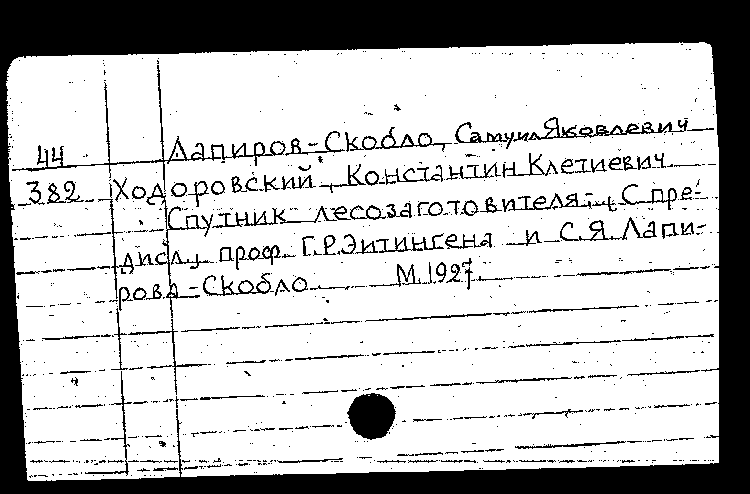 44 Лапиров-Скобло, Самуил Яковлевич
382 Ходоровский, Константин Клетиевич
Спутник лесозаготовителя; С пре-
дисл., проф. Г.Р.Эитингена и С.Я. Лапи-
рова-Скобло М.1927.